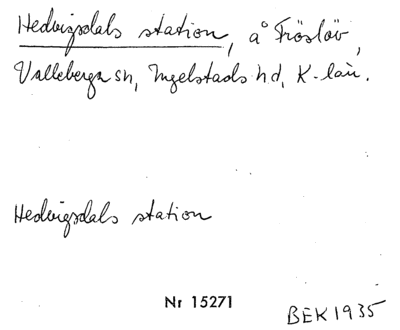 Hedvigsdals station, å Fröslöv,
Valleberga sn, Ingelstads hd, K-län.
Hedvigsdals station
Nr 15271
BEK 1935